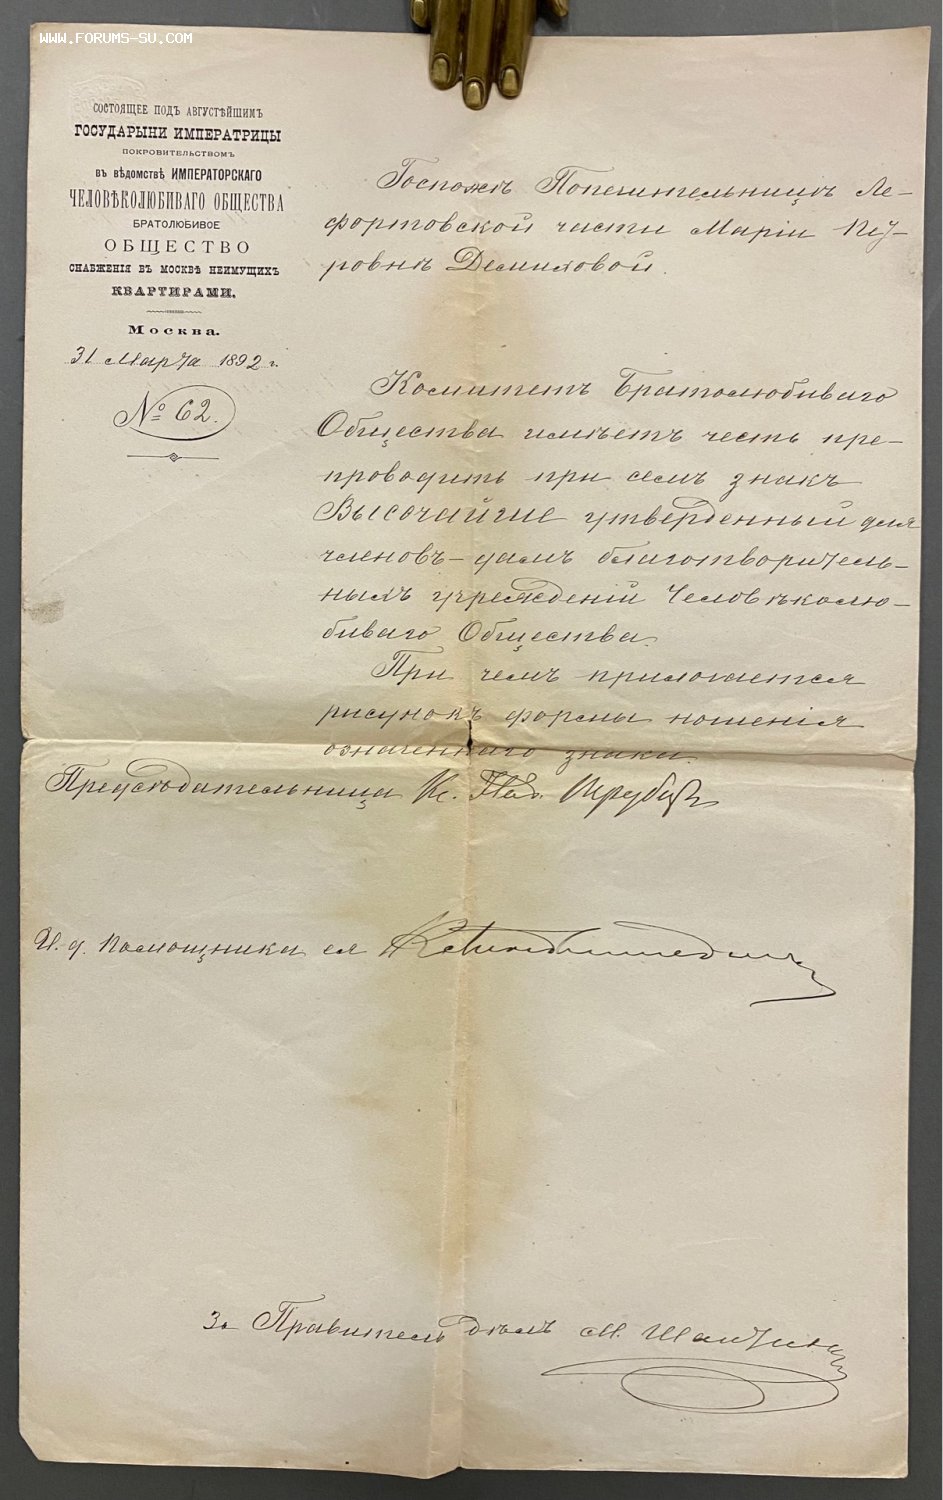 WWW.FORUMS-SU.COM
СОСТОЯЩЕЕ ПОДЪ АВГУСТѢЙШИМЪ
ГОСУДАРЫНИ ИМПЕРАТРИЦЫ
ПОКРОВИТЕЛЬСТВОМЪ
ВЪ ВѢДОМСТВѢ ИМПЕРАТОРСКАГО
ЧЕЛОВѢКОЛЮБИВАГО ОБЩЕСТВА
БРАТОЛЮБИВОЕ
ОБЩЕСТВО
СНАБЖЕНІЯ ВЪ МОСКВѢ НЕИМУЩИХЪ
КВАРТИРАМИ.
Москва.
31 Марта 1892 г.
№ 62.
Госпожѣ Попечительницѣ Ле-
фортовской части Маріи
Демидовой.
Комитетъ Братолюбиваго
Общества имѣетъ честь пре-
проводить при семъ знакъ
Высочайше утвержденный для
членовъ-дамъ благотворитель-
ныхъ учрежденій Человѣколю-
биваго Общества.
При чемъ прилогается
рисунокъ формы ношенія
означеннаго знака.
Предсѣдательница К. Над. Трубец
И. д. Помощника ея
За Правитель дѣлъ М.